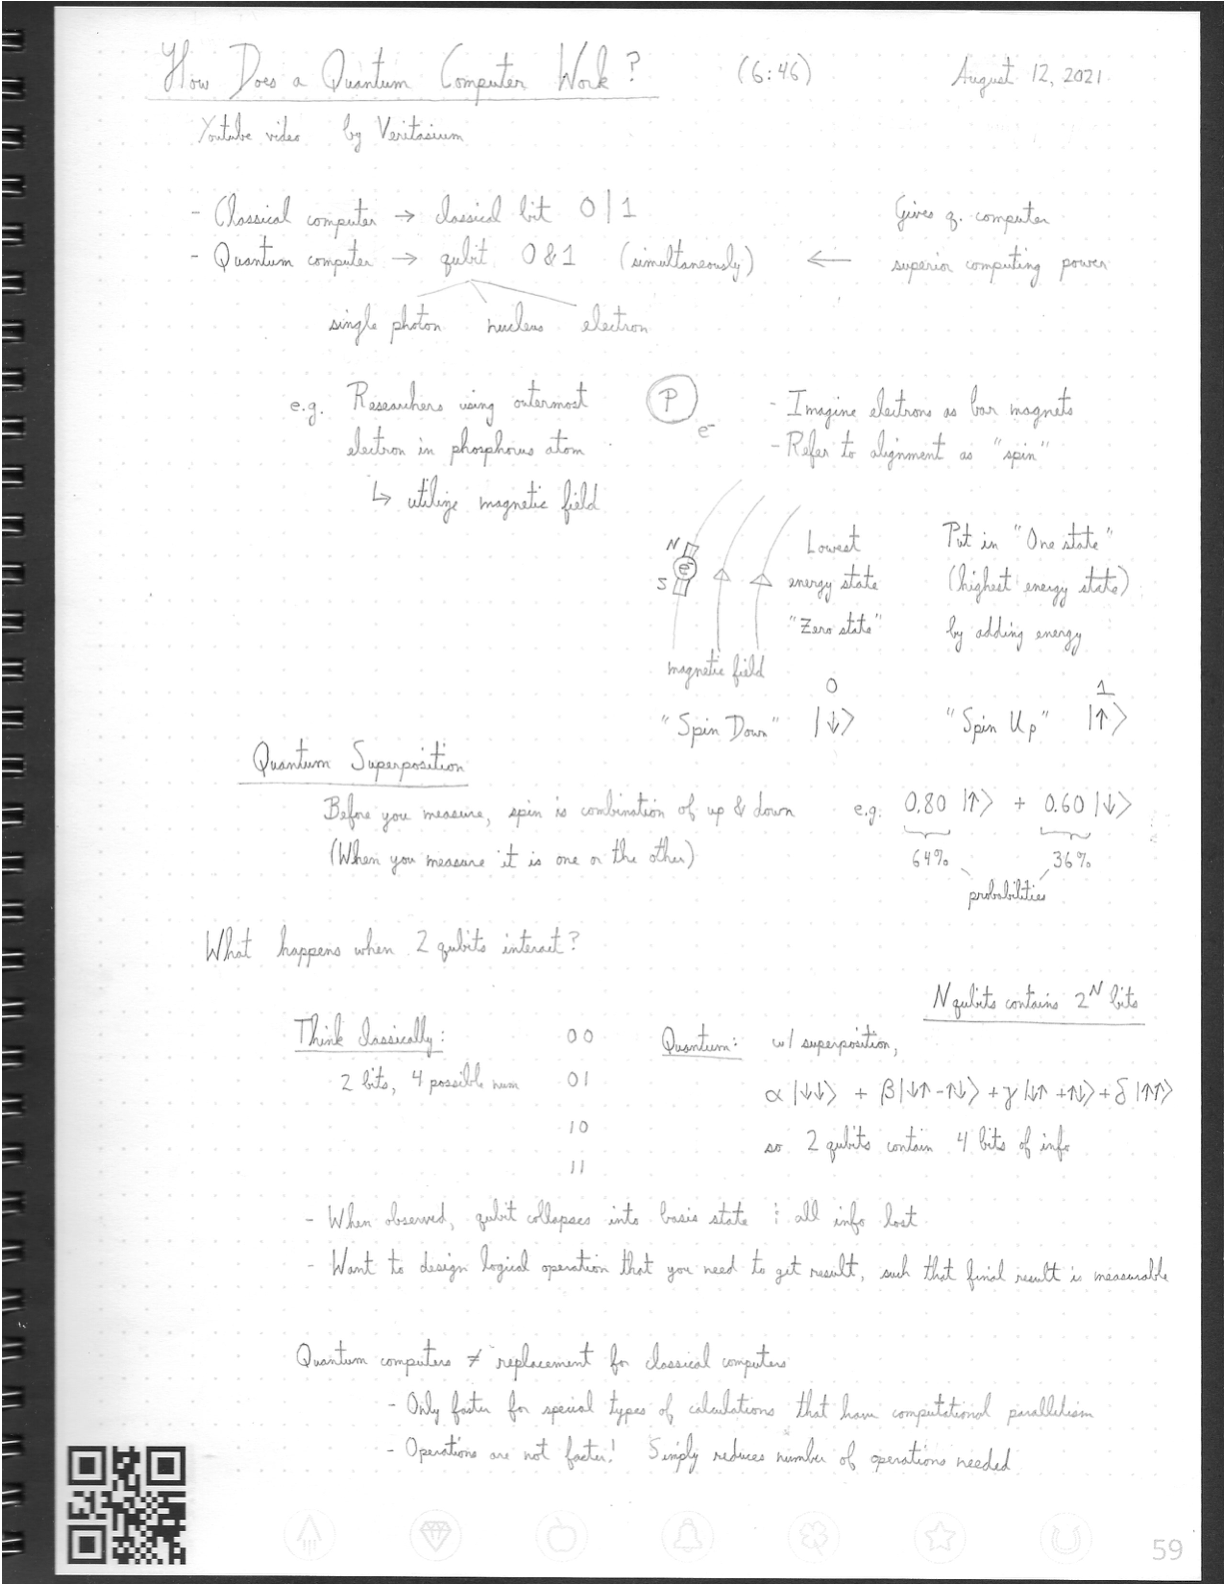 How Does a Quantum Computer Work? (6:46) August 12, 2021
Youtube video by Veritasium
- Classical computer → classical bit 0 | 1
- Quantum computer → qubit 0 & 1 (simultaneously) ←
Gives q. computer
superior computing power
single photon nucleus electron
e.g. Researchers using outermost
electron in phosphorus atom
↳ utilize magnetic field
P
e⁻
- Imagine electrons as bar magnets
- Refer to alignment as "spin"
N
e⁻
S
magnetic field
Lowest
energy state
"Zero state"
Put in "One state"
(highest energy state)
by adding energy
0
"Spin Down" |↓⟩
1
"Spin Up" |↑⟩
Quantum Superposition
Before you measure, spin is combination of up & down
(When you measure it is one or the other)
e.g. 0.80 |↑⟩ + 0.60 |↓⟩
64% 36%
probabilities
What happens when 2 qubits interact?
N qubits contains 2^N bits
Think classically:
2 bits, 4 possible num
00
01
10
11
Quantum: w/ superposition,
α |↓↓⟩ + β|↓↑ - ↑↓⟩ + γ |↓↑ + ↑↓⟩ + δ |↑↑⟩
so 2 qubits contain 4 bits of info
- When observed, qubit collapses into basis state ; all info lost
- Want to design logical operation that you need to get result, such that final result is measurable
Quantum computers ≠ replacement for classical computers
- Only faster for special types of calculations that have computational parallelism
- Operations are not faster! Simply reduces number of operations needed
59